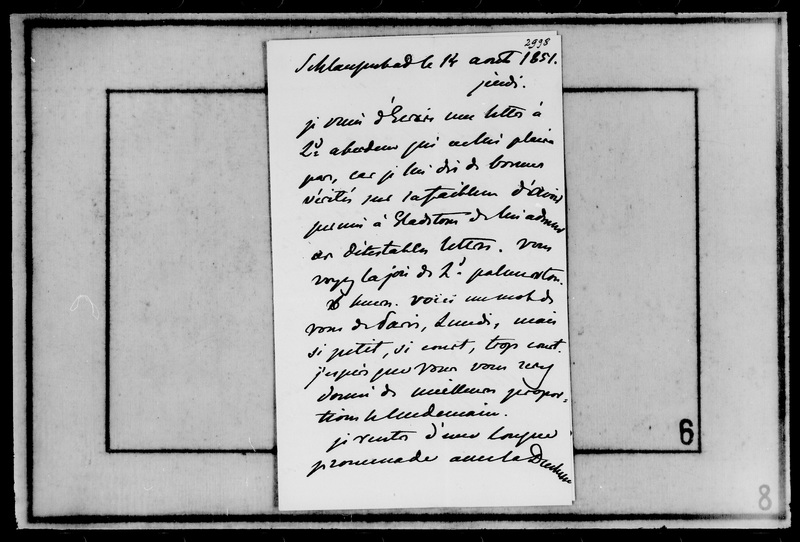 2998
Schlangenbad le 14 août 1851.
jeudi.
je viens d'écrire une lettre à
Ld aberdeen qui ne lui plaira
pas, car je lui dis de bonnes
vérités sur sa faiblesse d'avoir
permis à Gladstone de lui adresser
ces détestables lettres. vous
voyez la joie de Ld palmerston.
heures. voici un mot de
vous de Paris, Lundi, mais
si petit, si court, trop court.
j'espère que vous vous serez
donné de meilleures propor-
tions le lendemain.
je rentre d'une longue
promenade avec la Duchesse
6
8